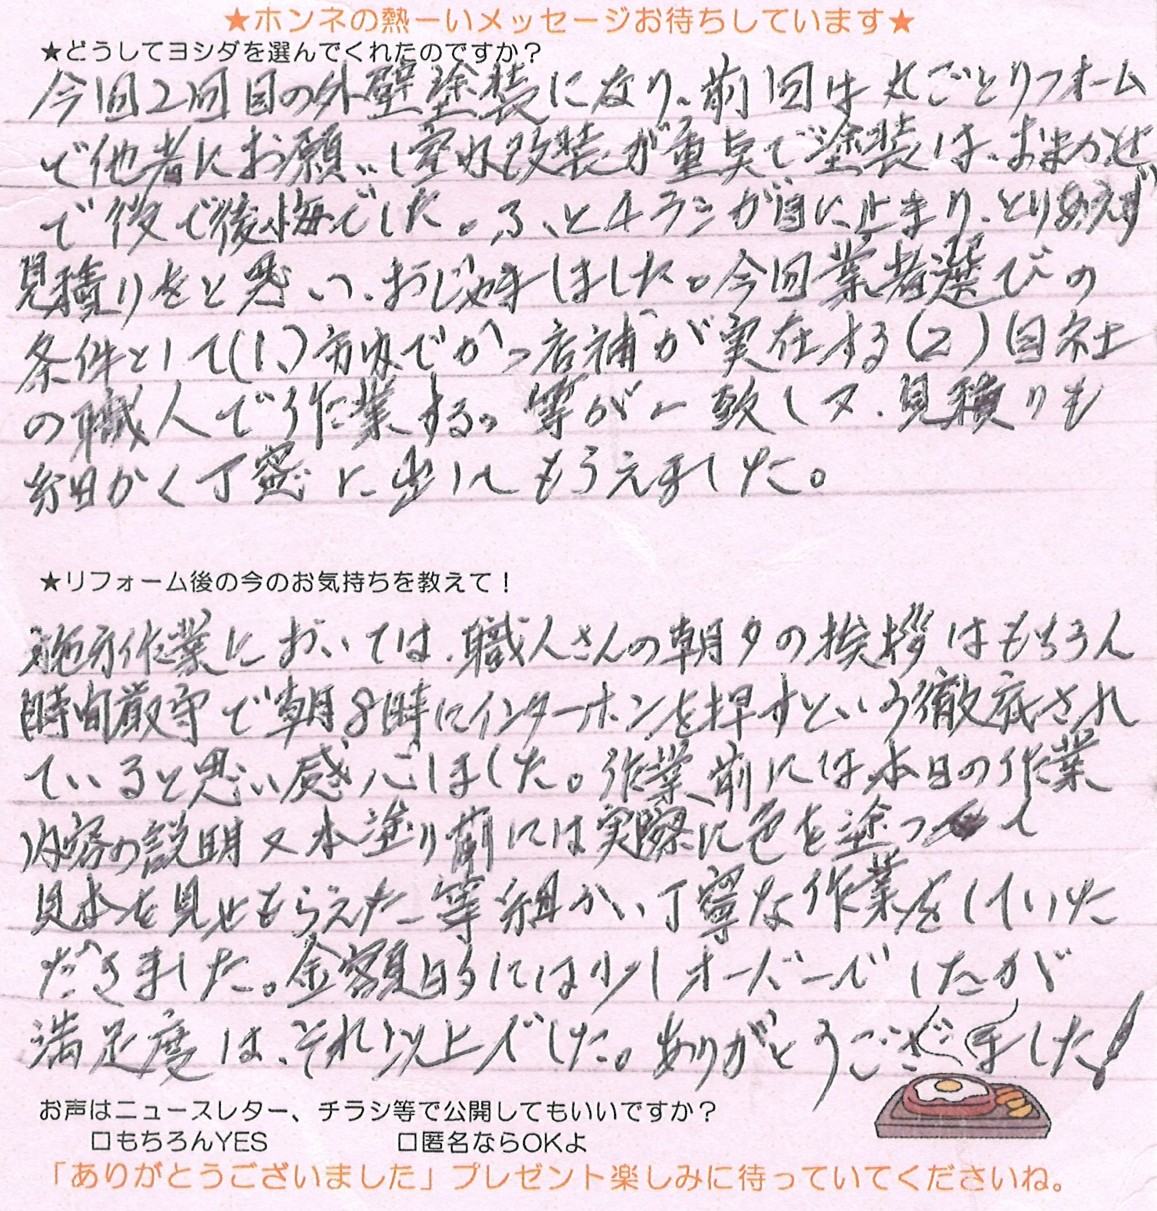 ★ホンネの熱ーいメッセージお待ちしています★
★どうしてヨシダを選んでくれたのですか？
今回2回目の外壁塗装になり、前回は丸ごとリフォーム
で他者にお願いし室内改装が重点で塗装は、おまかせ
で後で後悔でした。ふと、チラシが目に止まり、とりあえず
見積りをと思い、おじゃましました。今回業者選びの
条件として(1.)市内でかつ店補が実在する(2)自社
の職人で作業する。等が一致し又、見積りも
細かく丁寧に出してもらえました。
★リフォーム後の今のお気持ちを教えて！
施行作業においては、職人さんの朝夕の挨拶はもちろん
時間厳守で朝8時にインターホンを押すという徹底され
ていると思い感心しました。作業前には本日の作業
内容の説明又本塗り前には実際に色を塗っ て
見本を見せもらえた等細かい丁寧な作業をしていた
だきました。金額的には少しオーバーでしたが
満足度は、それ以上でした。ありがとうございました！
お声はニュースレター、チラシ等で公開してもいいですか？
□もちろんYES □匿名ならOKよ
「ありがとうございました」プレゼント楽しみに待っていてくださいね。